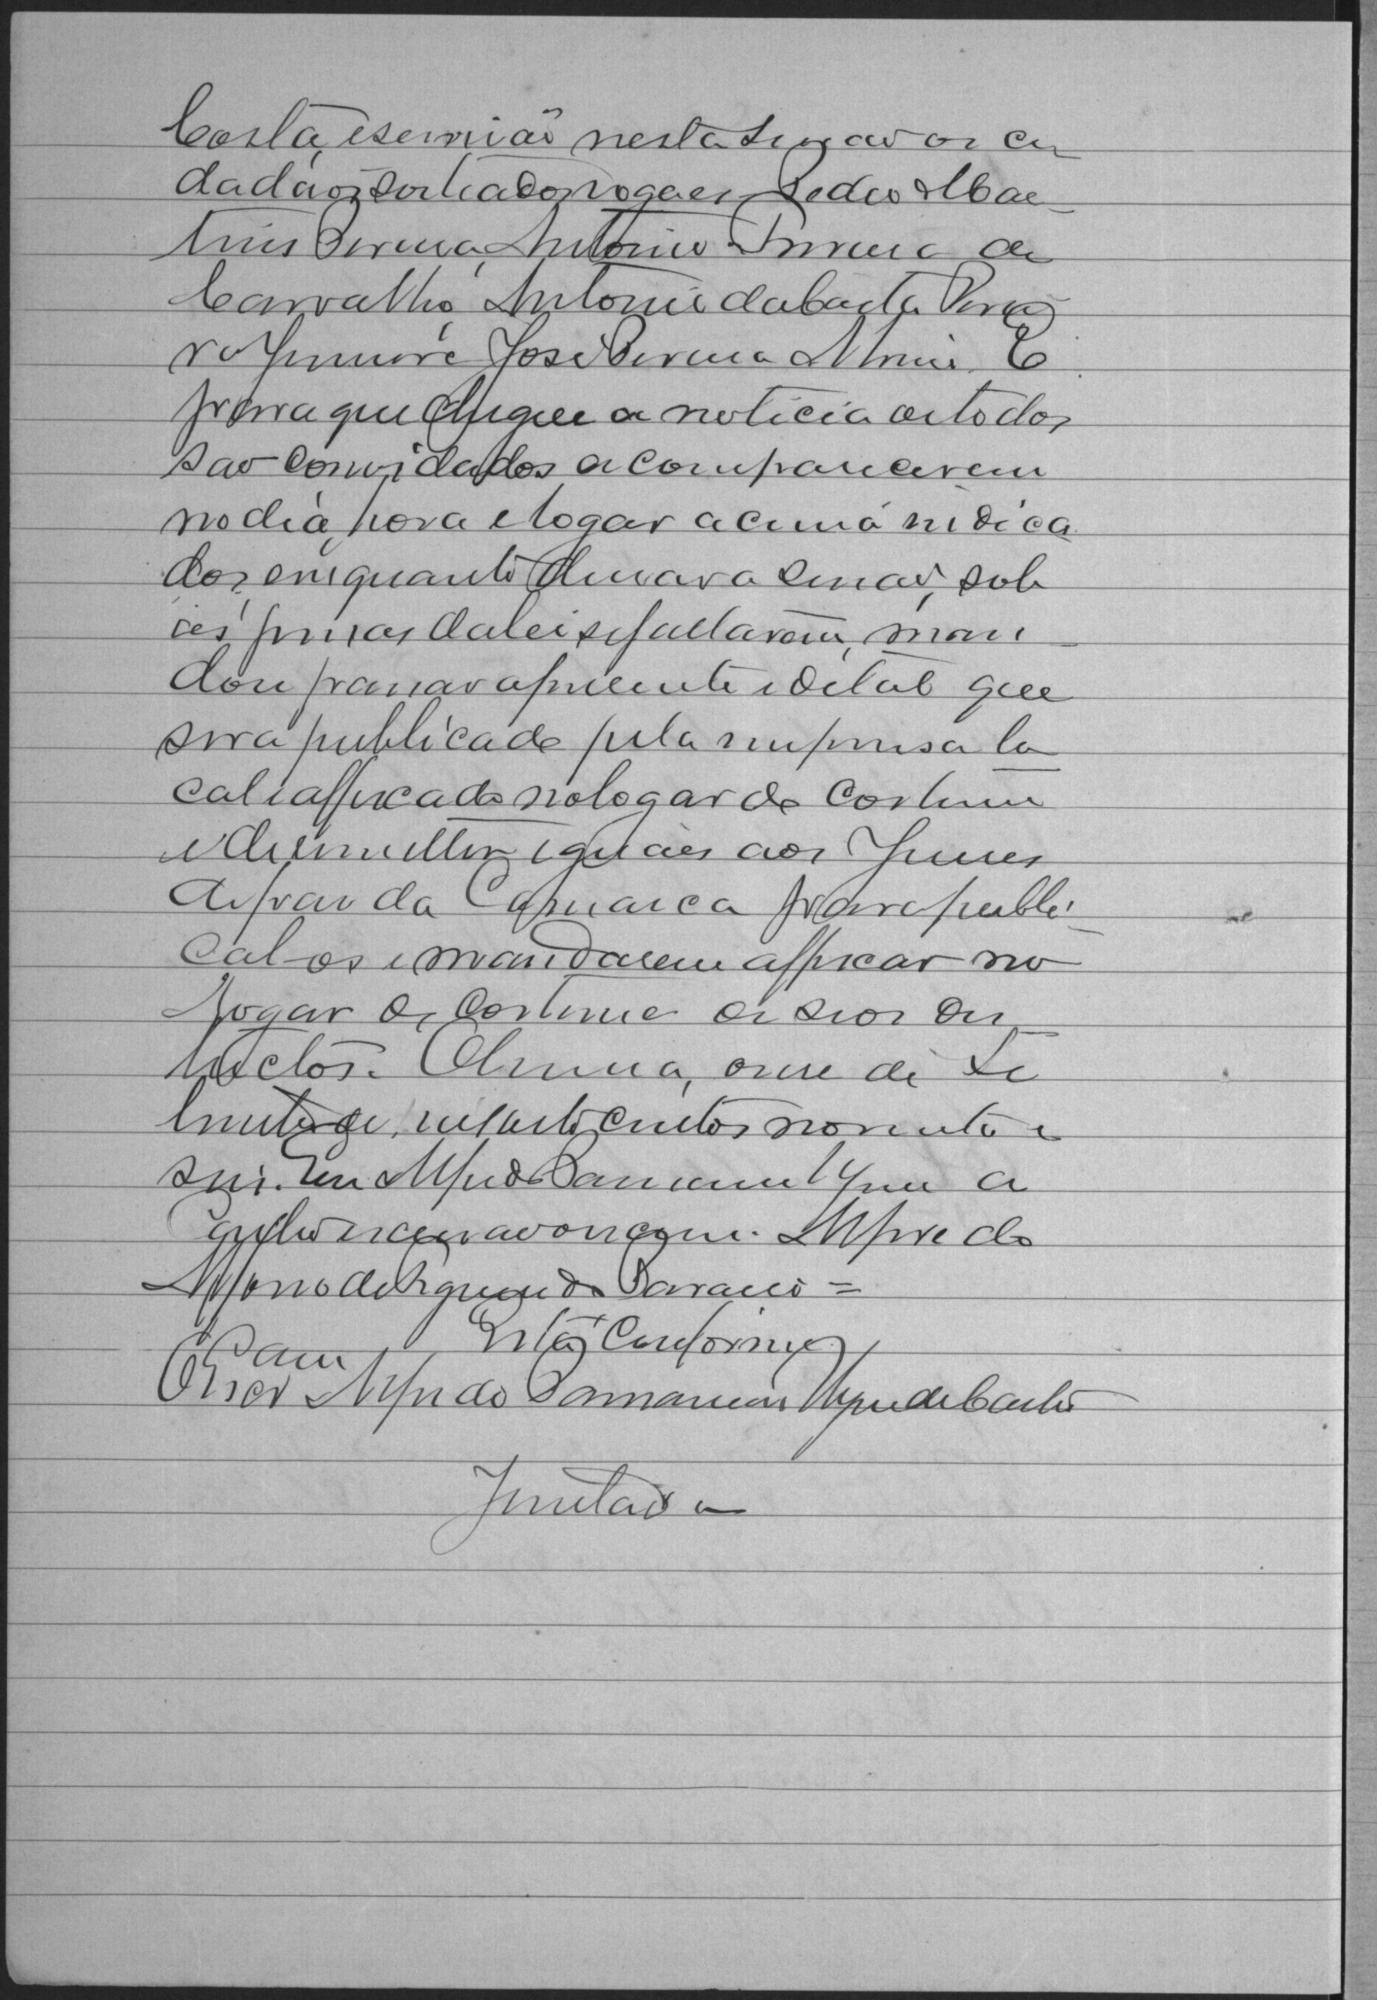 Costa, e servirão nesta secção os ci
dadãos sorteados vogaes Pedro Mar
tins Pereira, Antonio Ferreira de
Carvalho, Antonio da Costa
José Pereira E
para que chegue a noticia de todos
são convidados a comparecerem
no dia, hora e logar acima indica
dos, emquanto durar a sessão, sob
as penas da lei se faltarem, man
dou passar o presente edital que
será publicado pela imprensa lo
cal e affixado no logar do costume
e de remetter iguaes aos Juizes
de paz da Comarca para publi
cal-os e mandarem affixar no
logar de costume de seos dis
trictos. onze de Se
tembro de mil oito centos noventa e
seis. Eu Alfredo a
escrevi. Alfredo
=
Está Conforme
O Escr Alfredo de Castro
Juntada